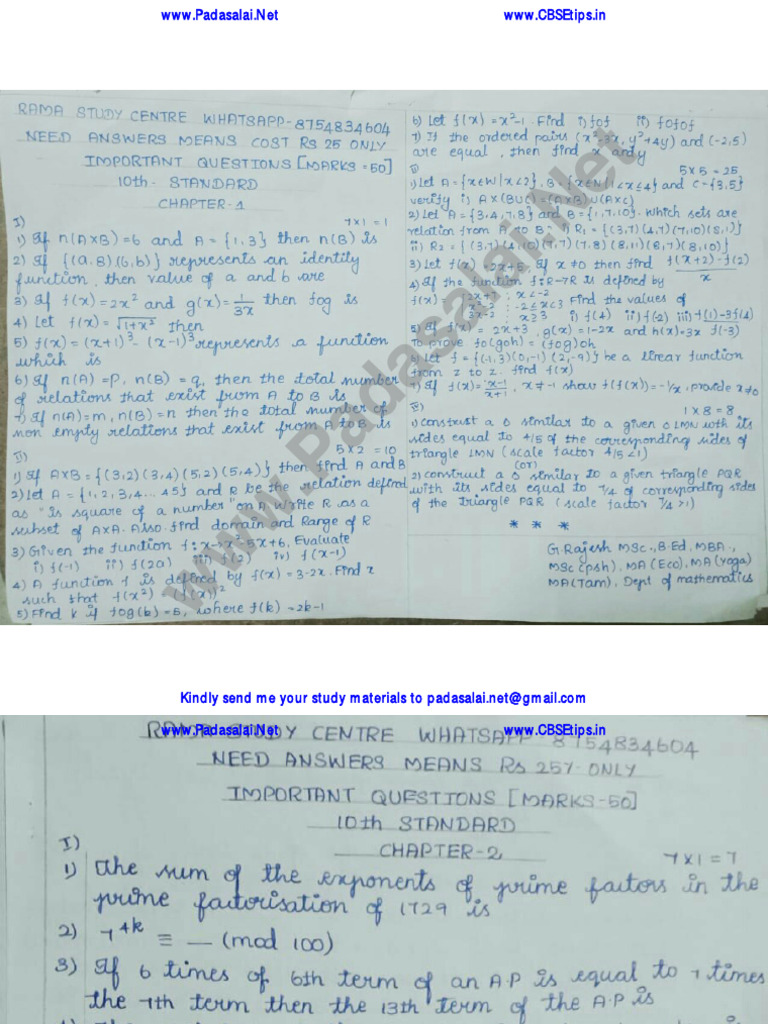 www.Padasalai.Net
www.CBSEtips.in
RAMA STUDY CENTRE WHATSAPP-8754834604
NEED ANSWERS MEANS COST RS 25 ONLY
IMPORTANT QUESTIONS [MARKS=50]
10th- STANDARD
CHAPTER-1
I) 7×1=1
1) If n(A×B)=6 and A={1,3} then n(B) is
2) If {(a,8)(6,b)} represents an identity
function, then value of a and b are
3) If f(x)=2x² and g(x)=1/3x then fog is
4) Let f(x)=√1+x² then
5) f(x)=(x+1)³-(x-1)³ represents a function
which is
6) If n(A)=P, n(B)=q, then the total number
of relations that exist from A to B is
7) If n(A)=m, n(B)=n then the total number of
non empty relations that exist from A to B is
II) 5×2=10
1) If A×B={(3,2)(3,4)(5,2)(5,4)} then find A and B
2) Let A={1,2,3,4...45} and R be the relation defined
as "is square of a number" on A. Write R as a
subset of A×A. Also find domain and Range of R
3) Given the function f:x→x²-5x+6, Evaluate
i) f(-1) ii) f(2a) iii) f(2) iv) f(x-1)
4) A function f is defined by f(x)=3-2x. Find x
such that f(x²) = (f(x))²
5) Find k if fog(k)=5, where f(k)=2k-1
6) Let f(x)=x²-1. Find i) fof ii) fofof
7) If the ordered pairs (x²-3x, y²+4y) and (-2,5)
are equal, then find x and y
5×5=25
1) Let A={x∈W|x<2}, B={x∈N|1<x≤4} and C={3,5}
verify i) A×(BUC)=(A×B)U(A×C)
2) Let A={3,4,7,8} and B={1,7,10}. Which sets are
relation from A to B i) R1={(3,7)(4,7)(7,10)(8,1)}
ii) R2={(3,7)(4,10)(7,7)(7,8)(8,11)(8,7)(8,10)}
3) Let f(x)=2x+5, If x≠0 then find f(x+2)-f(2)/x
4) If the function f:R→R is defined by
f(x)={2x+7; x<-2
x²-2; -2≤x<3 Find the values of
3x-2; x≥3 i) f(4) ii) f(-2) iii) f(1)-3f(4)
5) If f(x)=2x+3, g(x)=1-2x and h(x)=3x f(-3)
To prove fo(goh)=(fog)oh
6) Let f={(-1,3)(0,-1)(2,-9)} be a linear function
from z to z. find f(x)
7) If f(x)=x-1/x+1, x≠-1 show f(f(x))=-1/x, provide x≠0
1×8=8
1) construct a Δ similar to a given Δ LMN with its
sides equal to 4/5 of the corresponding sides of
triangle LMN (scale factor 4/5<1)
(or)
2) construct a Δ similar to a given triangle PQR
with its sides equal to 7/4 of corresponding sides
of the triangle PQR (scale factor 7/4>1)
* * *
G.Rajesh MSc., B.Ed, MBA.,
MSc(psh), MA(Eco), MA(Yoga)
MA(Tam), Dept of mathematics
www.Padasalai.Net
Kindly send me your study materials to padasalai.net@gmail.com
www.Padasalai.Net
www.CBSEtips.in
RAMA STUDY CENTRE WHATSAPP-8754834604
NEED ANSWERS MEANS Rs 25/- ONLY
IMPORTANT QUESTIONS [MARKS-50]
10th STANDARD
CHAPTER-2
I) 7×1=7
1) The sum of the exponents of prime factors in the
prime factorisation of 1729 is
2) 7^4k ≡ — (mod 100)
3) If 6 times of 6th term of an A.P is equal to 7 times
the 7th term then the 13th term of the A.P is